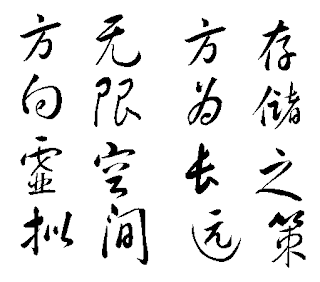 存储之策
方为长远
无限空间
方向虚拟